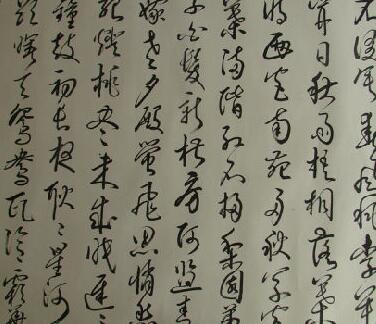 春風桃李花
開日秋雨梧桐落葉
時西宮南苑多秋草
葉滿階紅不掃梨園弟
子白髮新椒房阿監青
娥老夕殿螢飛思悄然
孤燈挑盡未成眠遲〻
鐘鼓初長夜耿〻星河
欲曙天鴛鴦瓦冷霜華